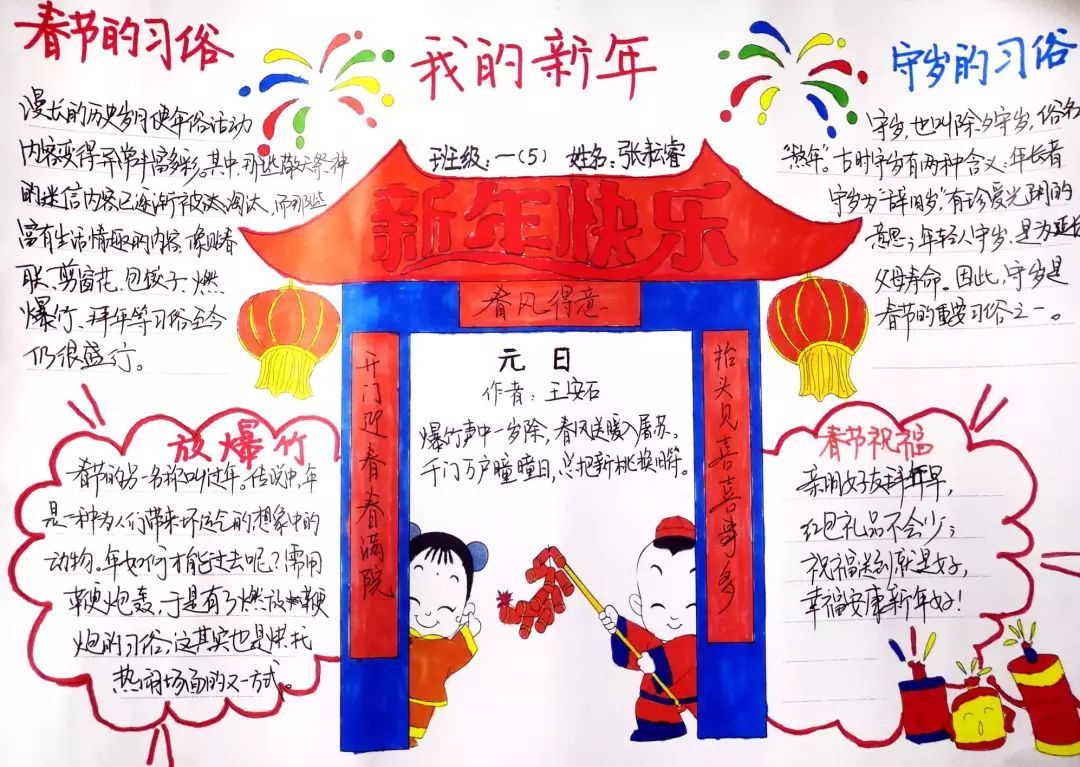 我的新年
班级：一（5） 姓名：张耘睿
春节的习俗
漫长的历史岁月使年俗活动
内容变得异常丰富多彩。其中，那些敬天祭神
的迷信内容已逐渐被汰淘汰，而那些
富有生活情趣的内容，像贴春
联、剪窗花、包饺子、燃
爆竹、拜年等习俗至今
仍很盛行。
守岁的习俗
守岁，也叫除夕守岁，俗名
“熬年”。古时守岁有两种含义：年长者
守岁为“辞旧岁”，有珍爱光阴的
意思；年轻人守岁，是为延长
父母寿命。因此，守岁是
春节的重要习俗之一。
新年快乐
春风得意
开门迎春春满院
抬头见喜喜事多
元日
作者：王安石
爆竹声中一岁除，春风送暖入屠苏。
千门万户曈曈日，总把新桃换旧符。
放爆竹
春节的另一名称叫过年。传说中，年
是一种为人们带来坏运气的想象中的
动物。年如何才能过去呢？需用
鞭炮轰，于是有了燃放鞭
炮的习俗，这其实也是烘托
热闹场面的又一方式。
春节祝福
亲朋好友拜年早，
红包礼品不会少；
祝福送到就是好，
幸福安康新年好！